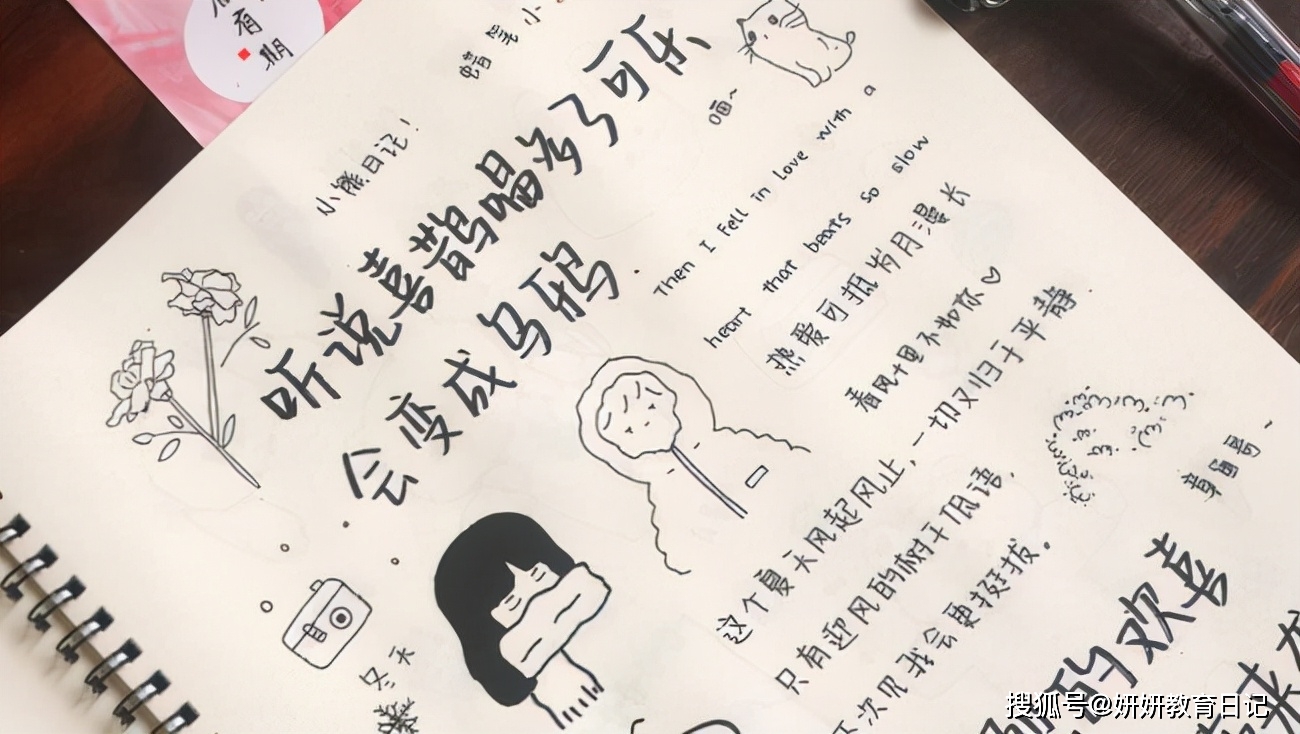 有
期
蜡笔小
小熊日记!
听说喜鹊唱多了可乐
会变成乌鸦.
喵~
Then I Fell in Love with a
heart that beats so slow
热爱可抵岁月漫长
春风十里不如你♡
这个夏天风起风止,一切又归于平静
只有迎风的树干低语,
下次见我会更挺拔.
冬天
的欢喜
来
搜狐号@妍妍教育日记